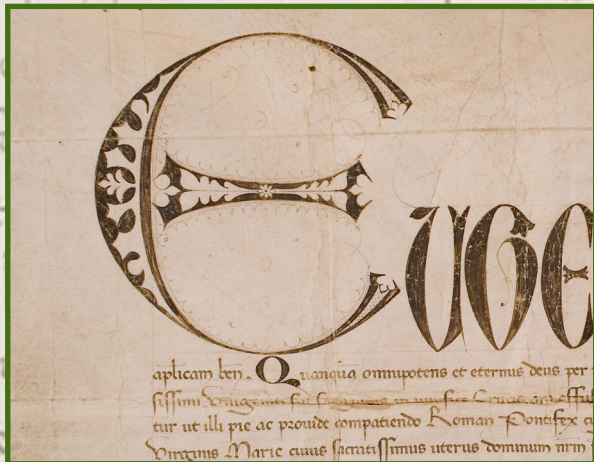 EUGE
aplicam ben. Quanqua omnipotens et eternus deus per
sissimi Unigeniti sui in
tur ut illi pie ac provide compatiendo Roman Pontifex
Virginis Marie cuius sacratissimus uterus dominum nrm